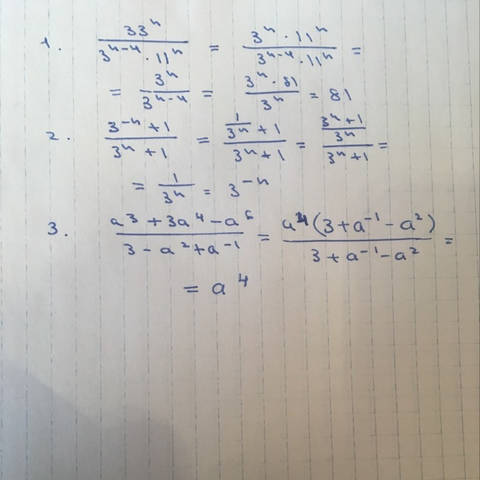 1. \frac{33^n}{3^{n-4} \cdot 11^n} = \frac{3^n \cdot 11^n}{3^{n-4} \cdot 11^n} =
= \frac{3^n}{3^{n-4}} = \frac{3^n \cdot 81}{3^n} = 81
2. \frac{3^{-n}+1}{3^n+1} = \frac{\frac{1}{3^n}+1}{3^n+1} = \frac{\frac{3^n+1}{3^n}}{3^n+1} =
= \frac{1}{3^n} = 3^{-n}
3. \frac{a^3+3a^4-a^6}{3-a^2+a^{-1}} = \frac{a^4(3+a^{-1}-a^2)}{3+a^{-1}-a^2} =
= a^4